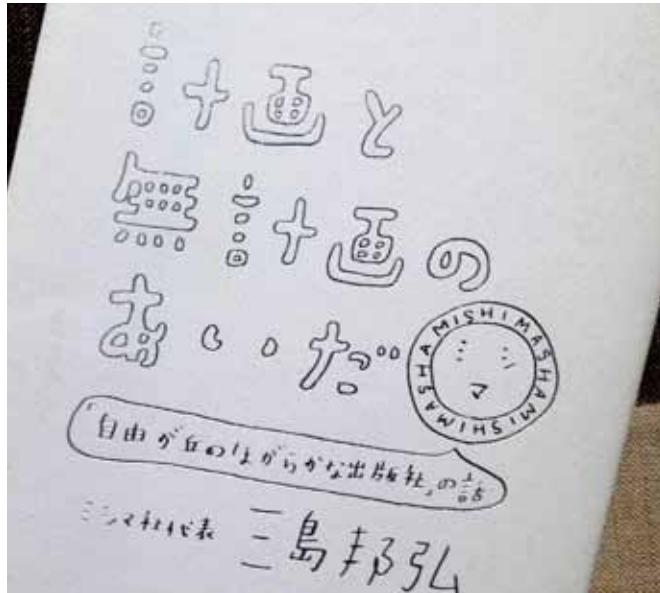 計画と
無計画の
あいだ
MISHIMASHAMISHIMASHA
ミシマ
「自由が丘のほがらかな出版社」の話
ミシマ社代表 三島邦弘